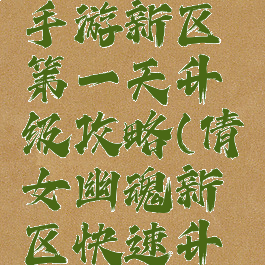 手游新区
第一天升
级攻略(倩
女幽魂新
区快速升